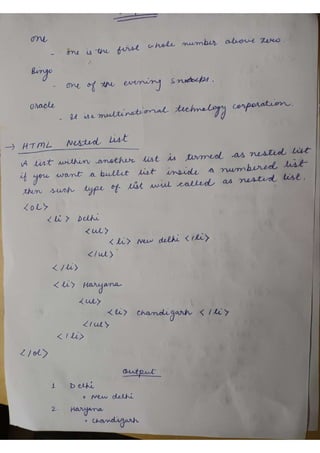 one
- one is the first whole number above zero.
Bingo
- one of the evening snacks.
oracle
- It is a multinational technology corporation.
→ HTML Nested list
A list within another list is termed as nested list
if you want a bullet list inside a numbered list
then such type of list will called as nested list.
<ol>
<li> Delhi
<ul>
<li> New delhi </li>
</ul>
</li>
<li> Haryana
<ul>
<li> Chandigarh </li>
</ul>
</li>
</ol>
output
1 Delhi
• New delhi
2. Haryana
• Chandigarh